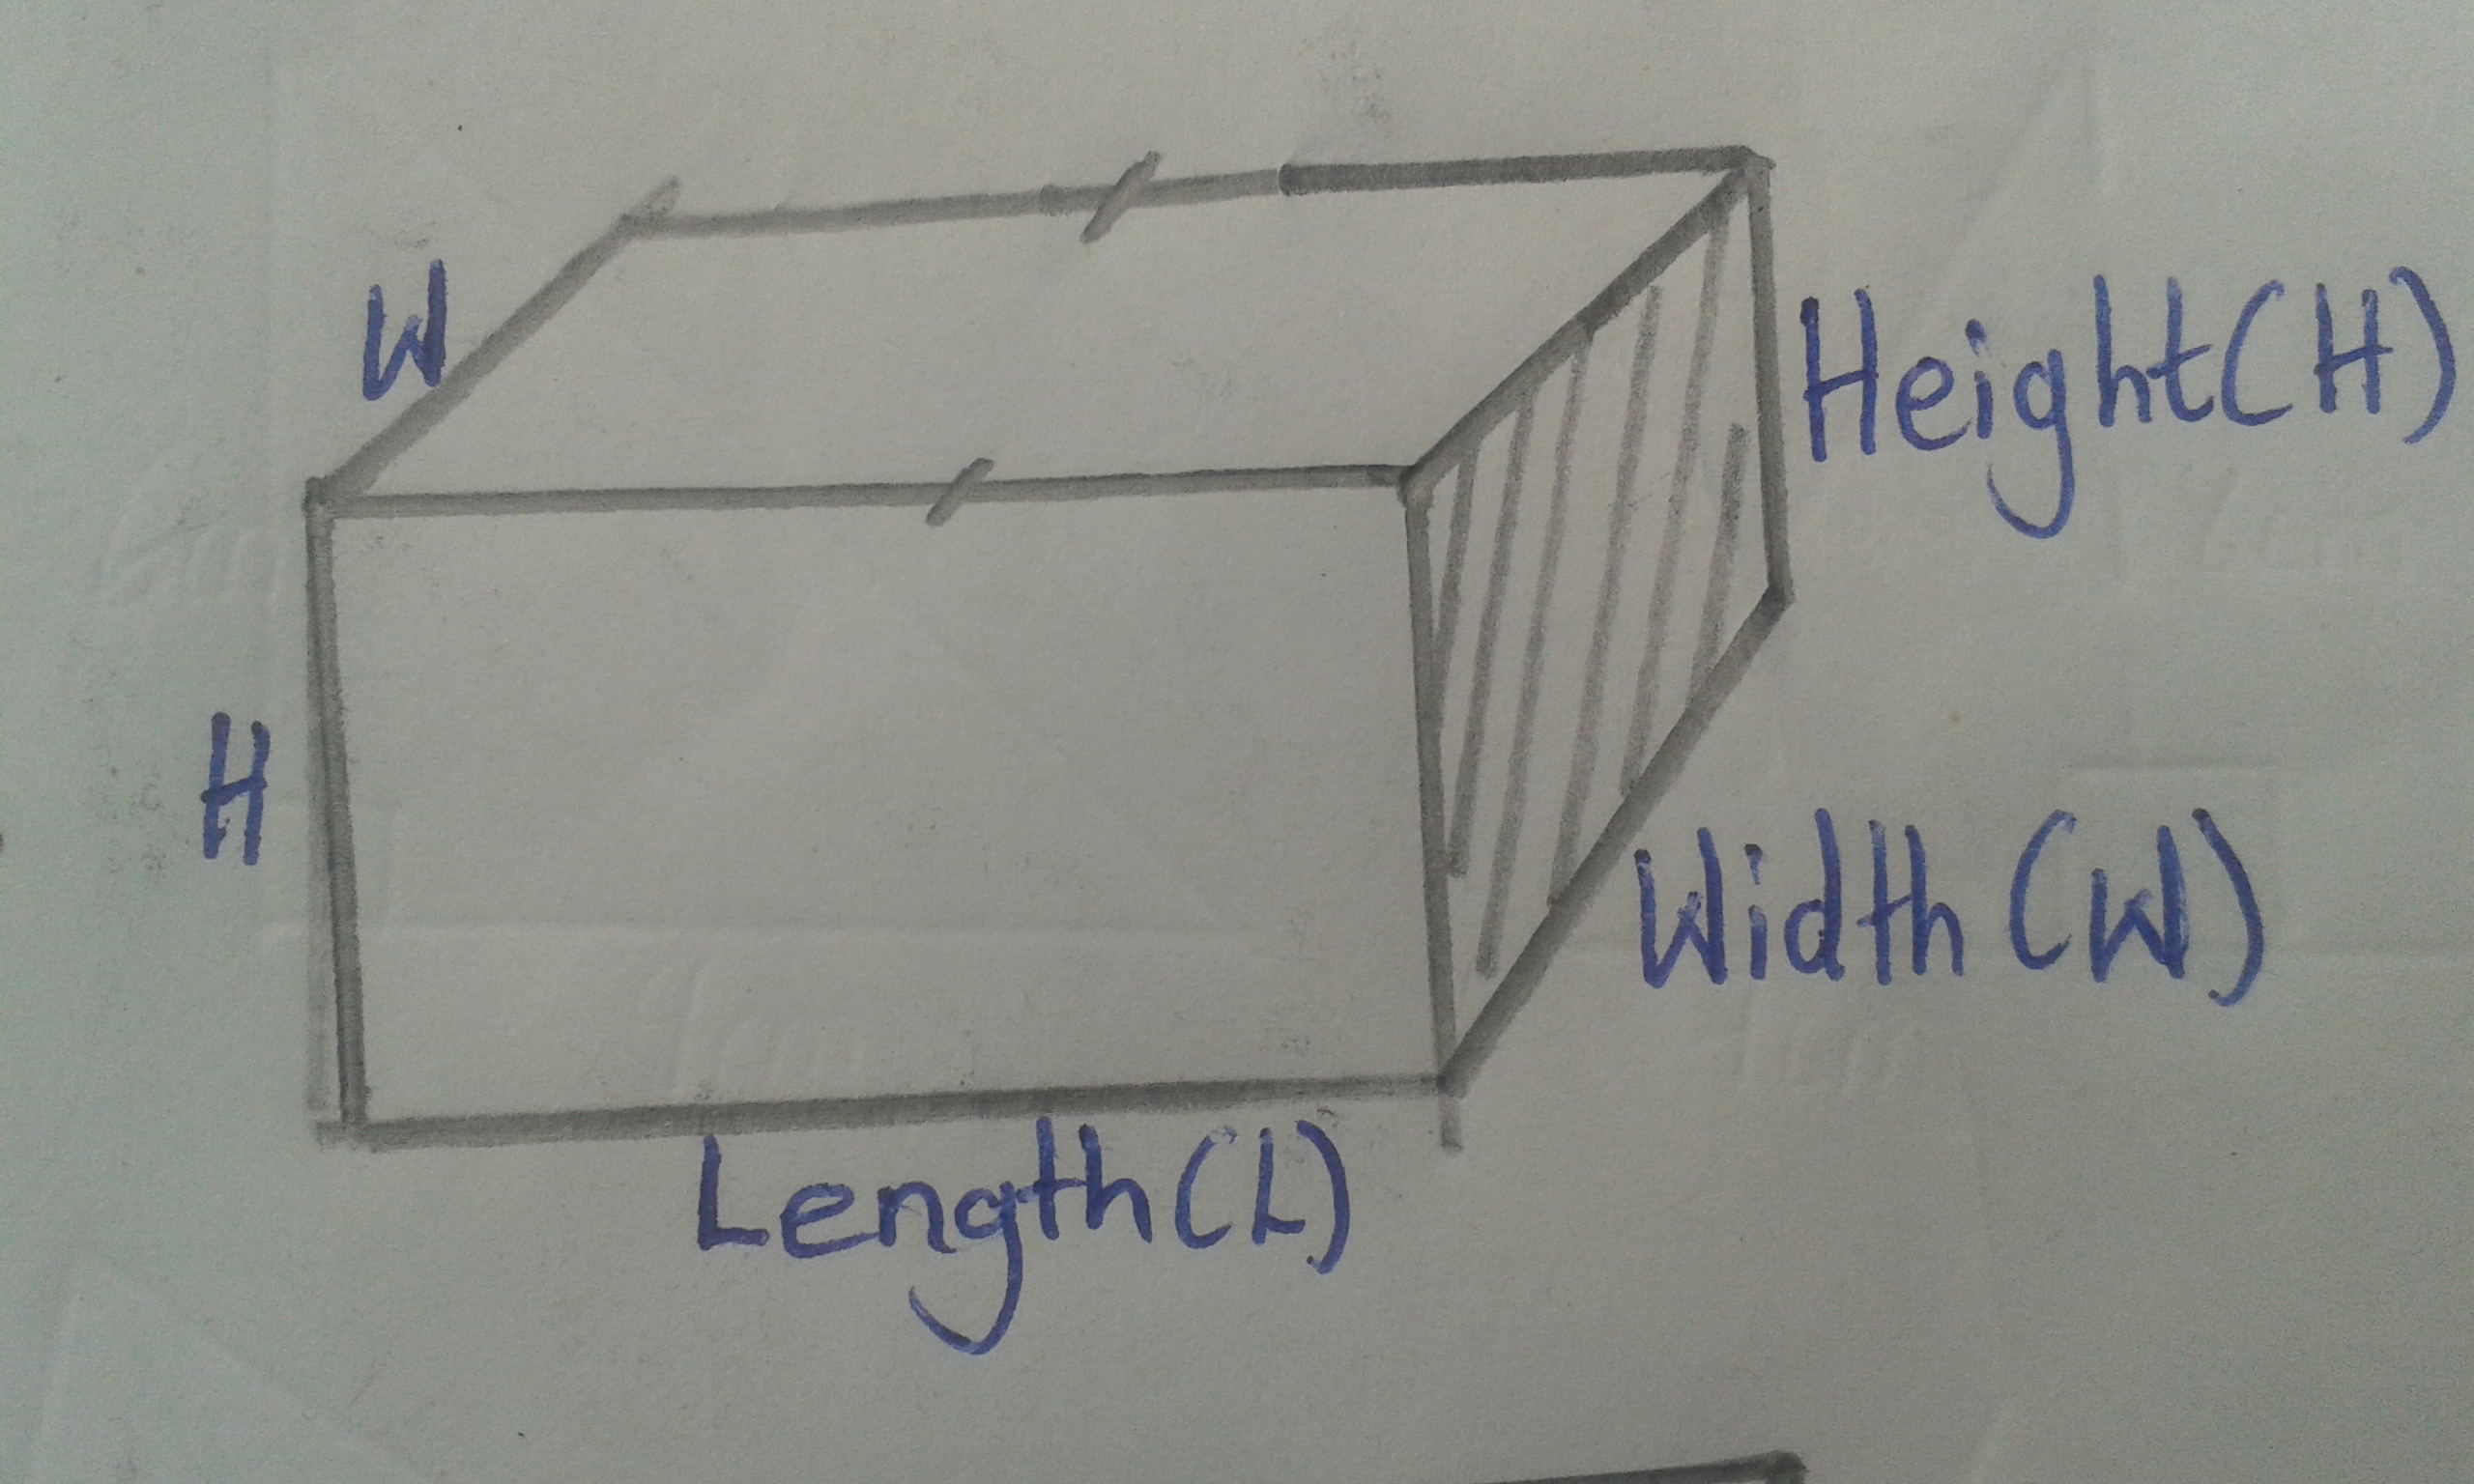 W
Height(H)
H
Width (W)
Length(L)